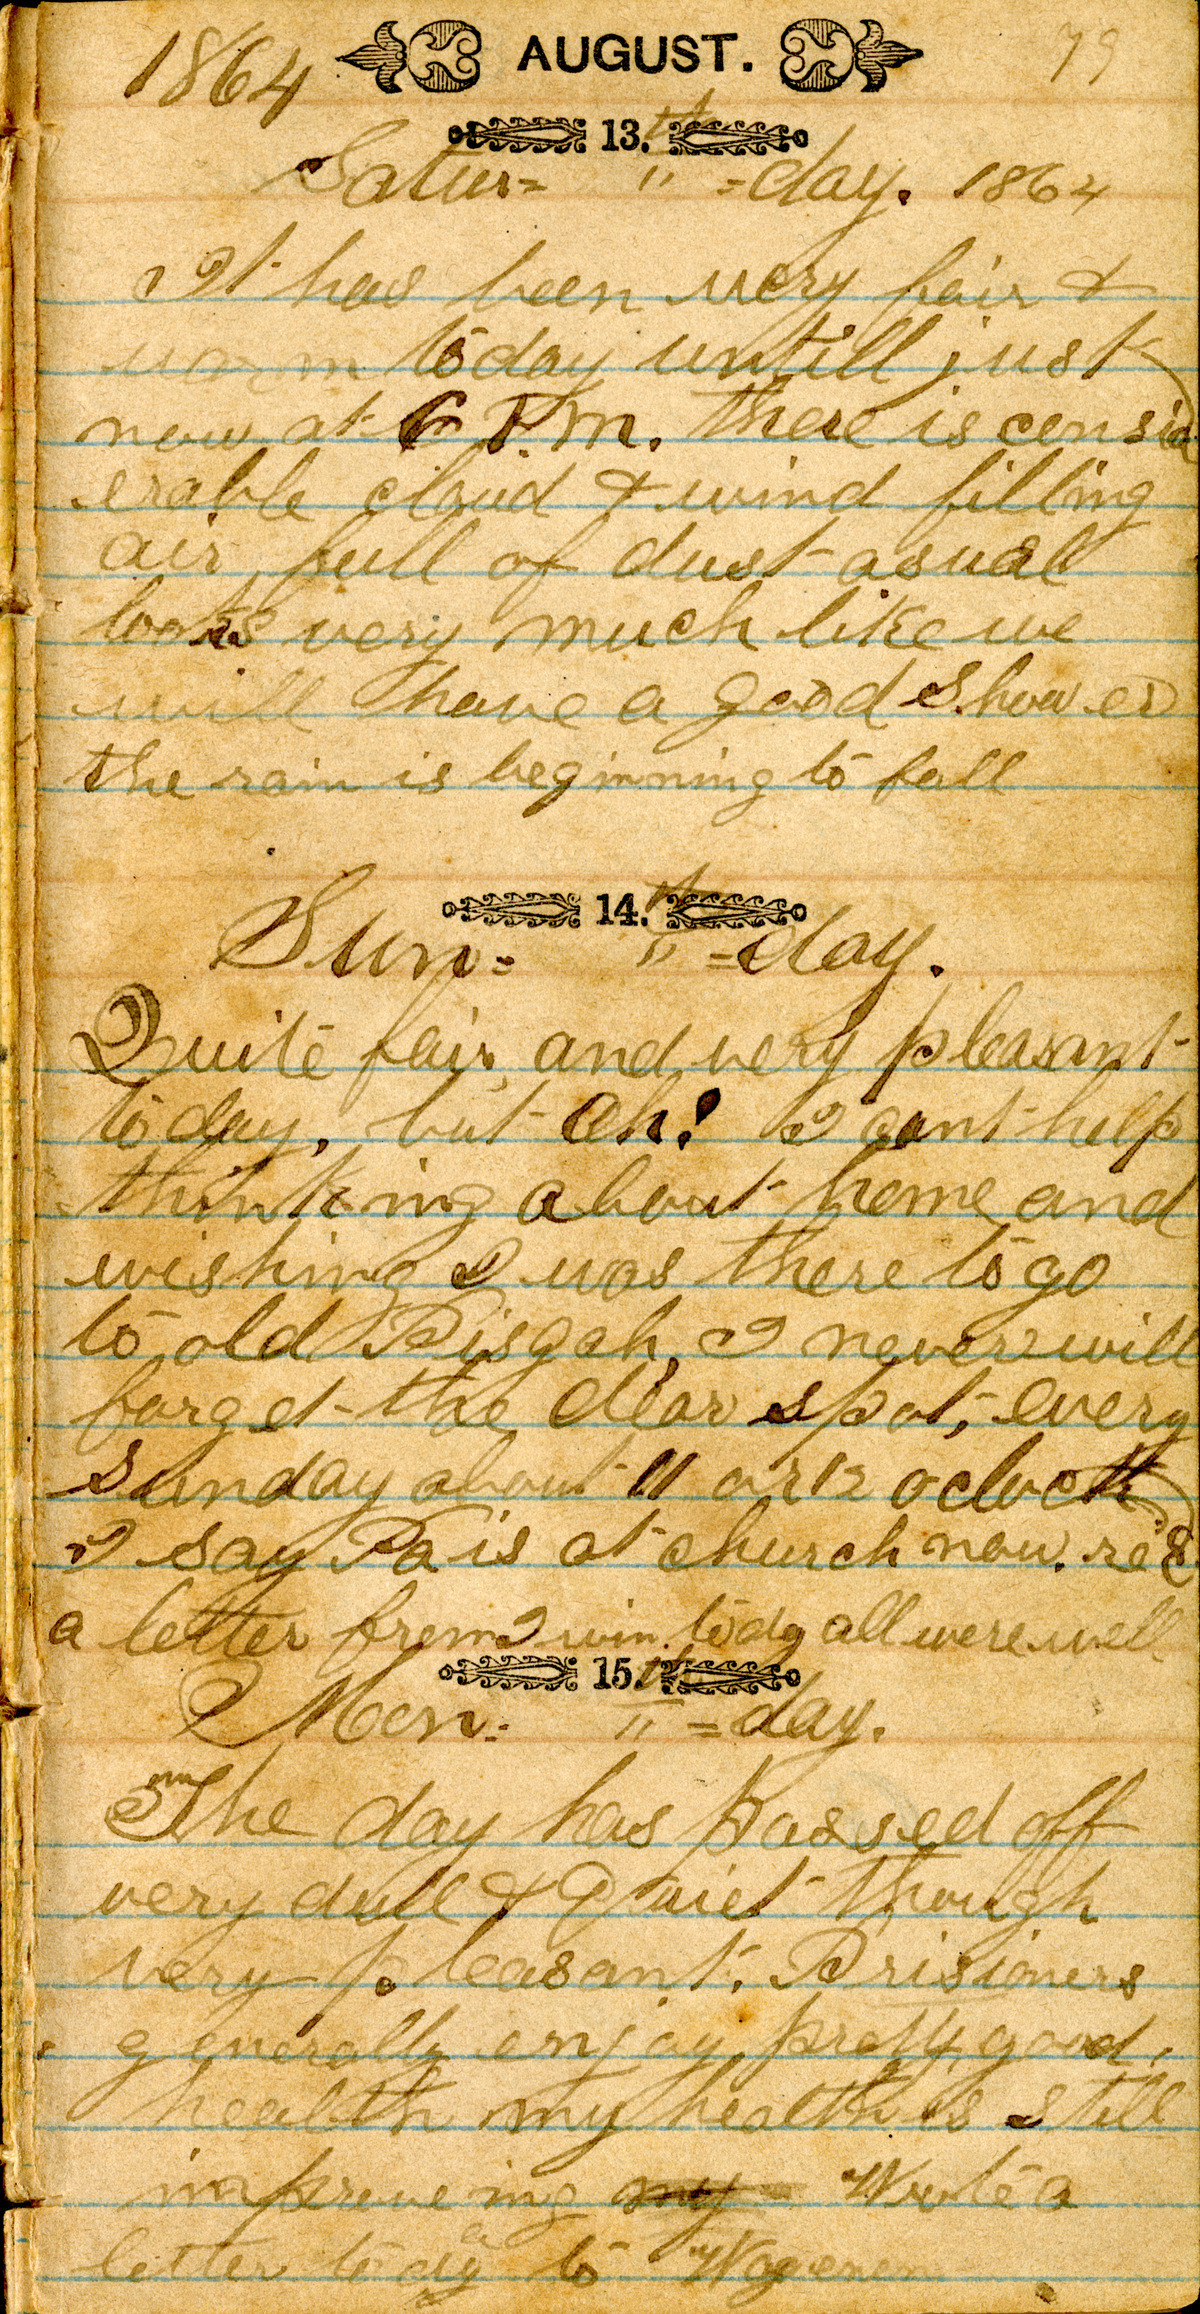 1864 AUGUST. 79
13.th
Satur= " =day. 1864
It has been very fair &
warm today untill just
now at 6 P.m. there is consid
erable cloud & wind filling
air full of dust asual
looks very much like we
will have a good Shower
the rain is beginning to fall
14.th
Sun= " =day.
Quite fair and very pleasant
today, but Oh! I cant help
thinking about home and
wishing I was there to go
to old Pisgah, I never will
forget the dear spot, every
Sunday about 11 or 12 oclock
I say Pa is at church now. recd
a letter from today all were well
15.th
Mon= " =day.
The day has passed off
very dull & Quiet though
very pleasant. Prisioners
generally enjoy pretty good
health my health is still
improveing my Wrote a
letter today to